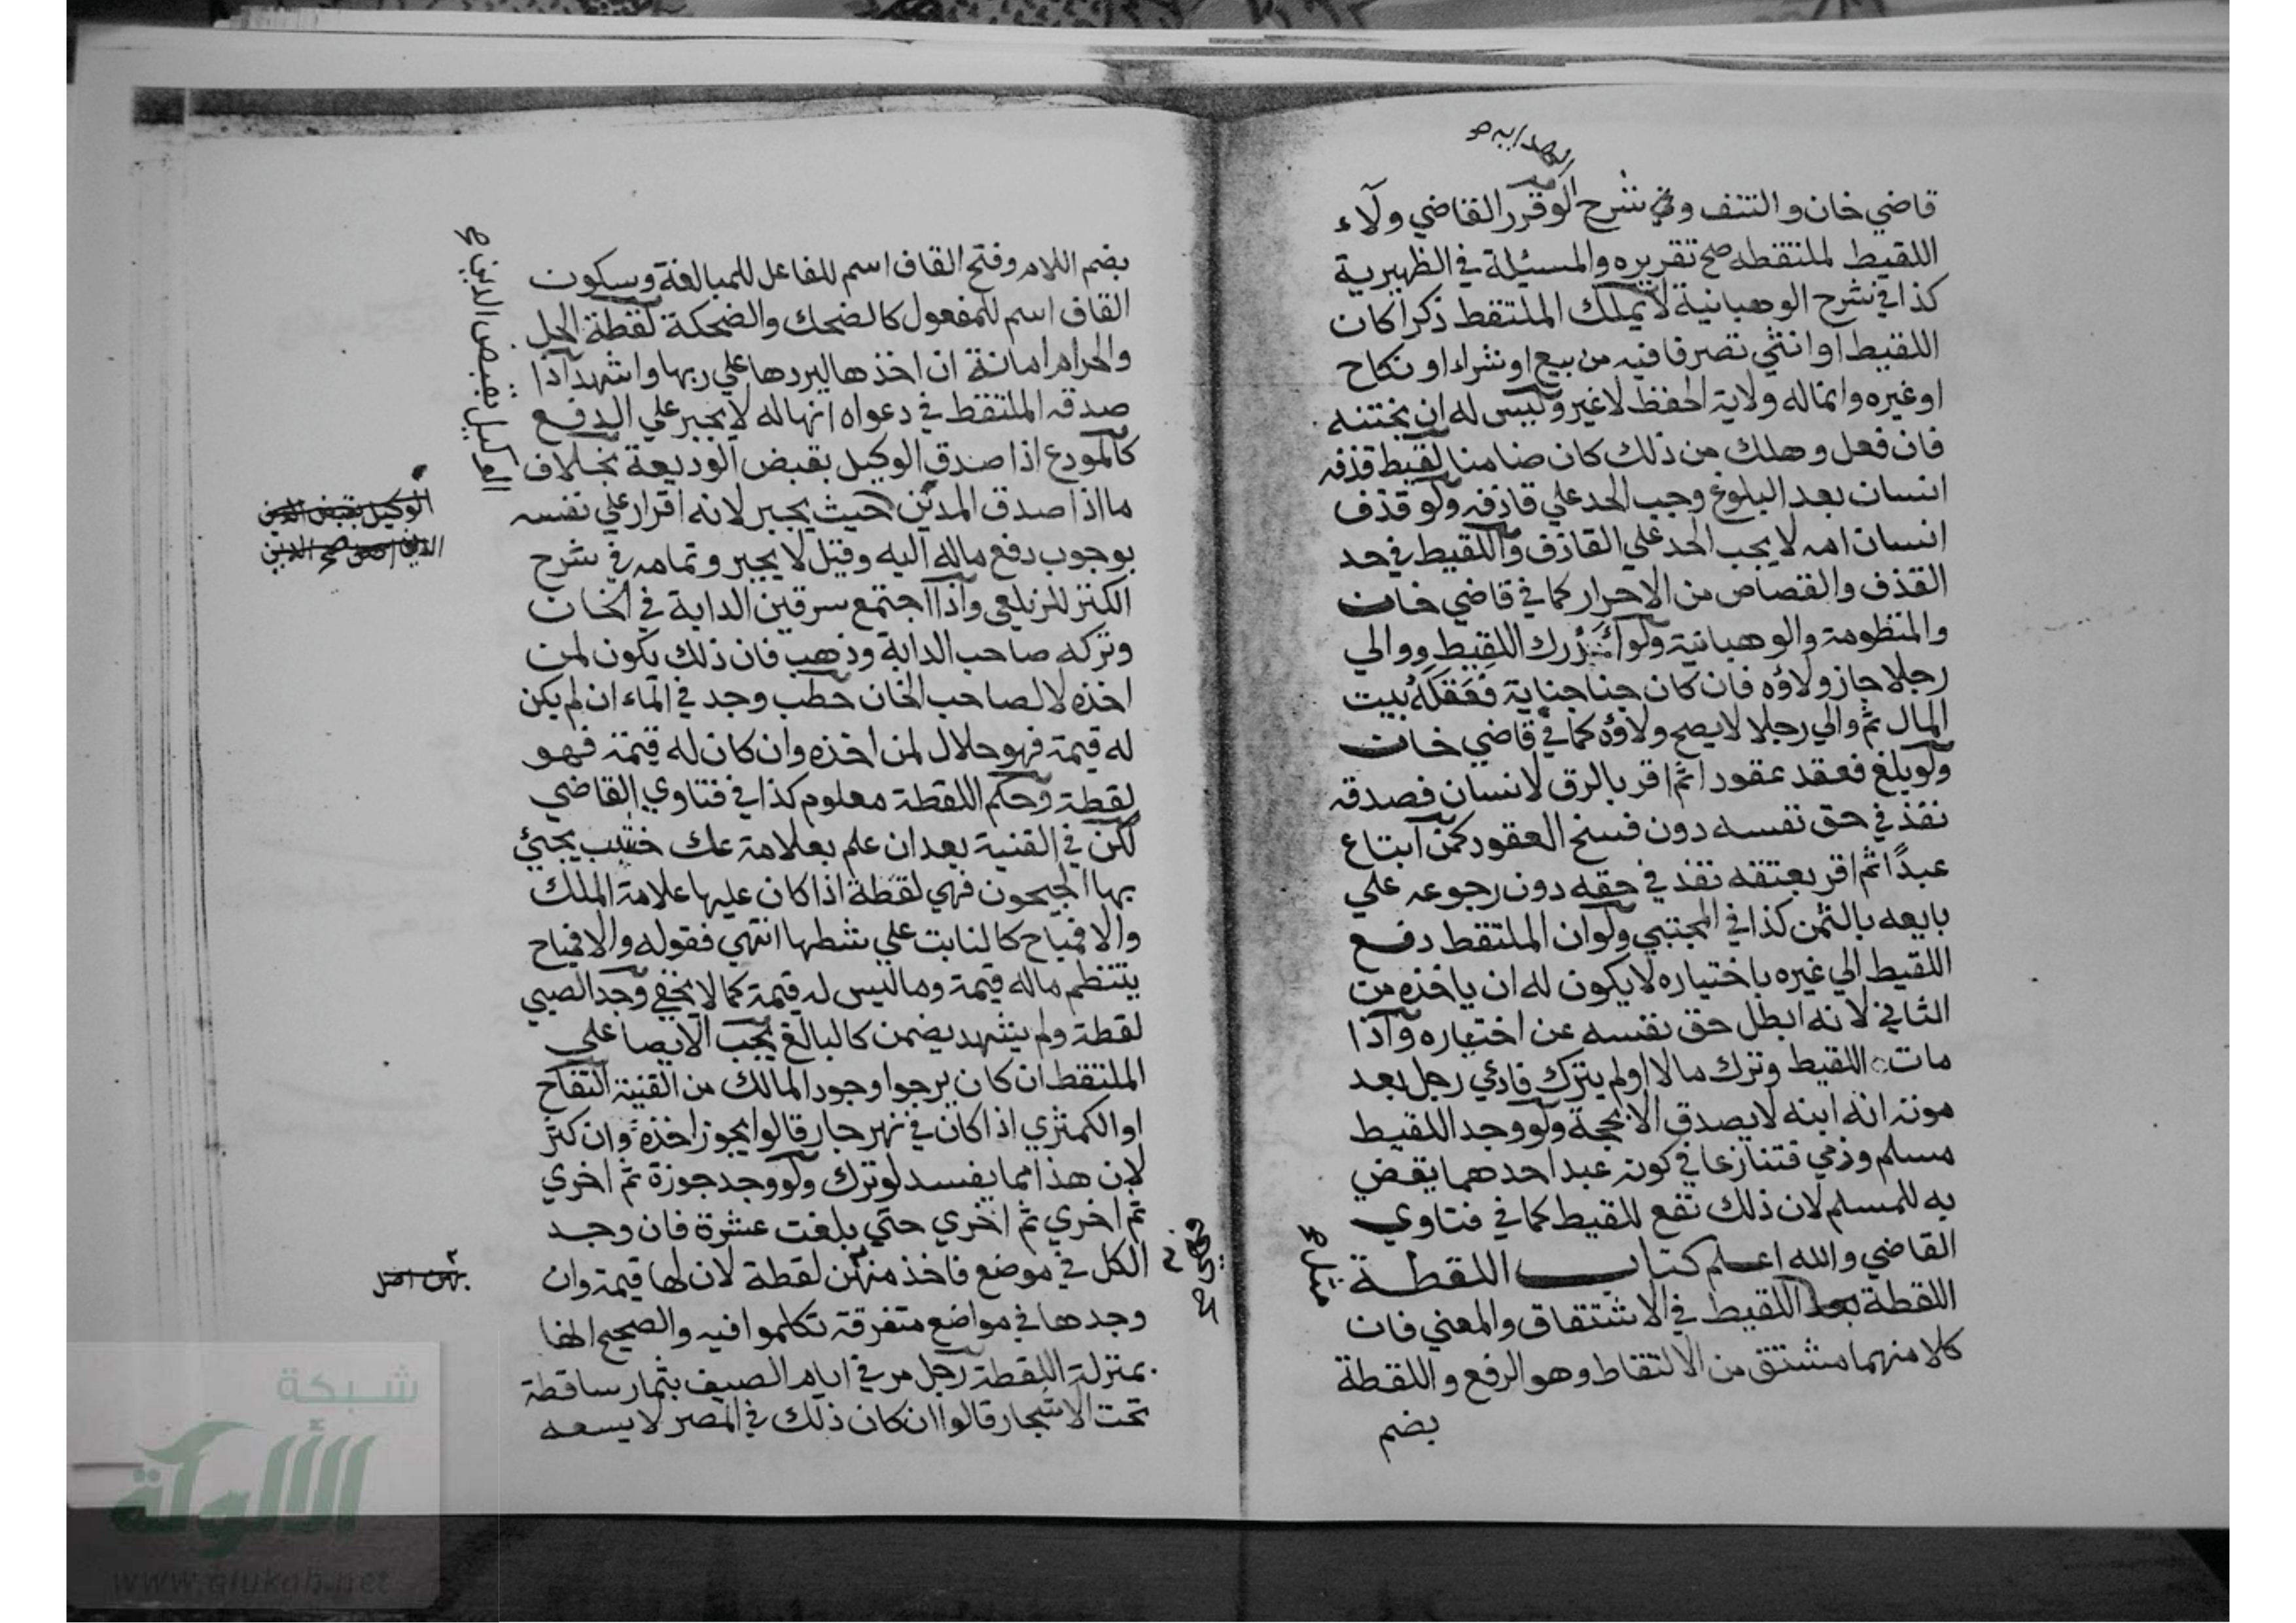 قاضي خان والنتف وفي شرح لو قرر القاضي ولاء
اللقيط لملتقطه صح تقريره والمسئلة في الظهيرية
كذا في شرح الوهبانية لا يملك الملتقط ذكرا كان
اللقيط او انثي تصرفا فيه من بيع او شراء او نكاح
او غيره وانما له ولاية الحفظ لا غير وليس له ان يختنه
فان فعل وهلك من ذلك كان ضامنا لقيط قذفه
انسان بعد البلوغ وجب الحد علي قاذفه ولو قذف
انسان امه لا يجب الحد علي القاذف واللقيط في حد
القذف والقصاص من الاحرار كما في قاضي خان
والمنظومة والوهبانية ولو ادرك اللقيط ووالي
رجلا جاز ولاؤه فان كان جنا جناية فعقله بيت
المال ثم والي رجلا لا يصح ولاؤه كما في قاضي خان
ولو بلغ فعقد عقودا ثم اقر بالرق لانسان فصدقه
نفذ في حق نفسه دون فسخ العقود كمن ابتاع
عبدًا ثم اقر بعتقه نفذ في حقه دون رجوعه علي
بايعه بالثمن كذا في المجتبي ولو ان الملتقط دفع
اللقيط الي غيره باختياره لا يكون له ان ياخذه من
الثاني لانه ابطل حق نفسه عن اختياره واذا
مات اللقيط وترك مالا او لم يترك فادعي رجل بعد
موته انه ابنه لا يصدق الا بحجة ولو وجد اللقيط
مسلم وذمي فتنازعا في كونه عبد احدهما يقض
به للمسلم لان ذلك نفع للقيط كما في فتاوي
القاضي والله اعلم كتاب اللقطة
اللقطة اللقيط في الاشتقاق والمعني فان
كلا منهما مشتق من الالتقاط وهو الرفع واللقطة
بضم
بضم اللام وفتح القاف اسم للفاعل للمبالغة وسكون
القاف اسم للمفعول كالضحك والضحكة لقطة الحل
والحرام امانة ان اخذها ليردها علي ربها واشهد اذا
صدقه الملتقط في دعواه انها له لا يجبر علي الدفع
كالمودع اذا صدق الوكيل بقبض الوديعة بخلاف
ما اذا صدق المدين حيث يجبر لانه اقرار علي نفسه
بوجوب دفع ماله اليه وقيل لا يجبر وتمامه في شرح
الكنز للزيلعي واذا اجتمع سرقين الدابة في الخان
وتركه صاحب الدابة وذهب فان ذلك يكون لمن
اخذه لا لصاحب الخان حطب وجد في الماء ان لم يكن
له قيمة فهو حلال لمن اخذه وان كان له قيمة فهو
لقطة وحكم اللقطة معلوم كذا في فتاوي القاضي
لكن في القنية بعد ان علم بعلامة عك خشب يجيئ
بها الجيحون فهي لقطة اذا كان عليها علامة الملك
والا فمباح كالنابت علي شطها انتهي فقوله والا فمباح
ينتظم ماله قيمة وما ليس له قيمة كما لا يخفي وجد الصبي
لقطة ولم يشهد يضمن كالبالغ يجب الايصا علي
الملتقط ان كان يرجوا وجود المالك من القنية التفاح
او الكمثري اذا كان في نهر جار قالوا يجوز اخذه وان كثر
لان هذا مما يفسد لو ترك ولو وجد جوزة ثم اخري
ثم اخري ثم اخري حتي بلغت عشرة فان وجد
الكل في موضع فاخذ منهن لقطة لان لها قيمة وان
وجدها في مواضع متفرقة تكلموا فيه والصحيح انها
بمنزلة اللقطة رجل مر في ايام الصيف بثمار ساقطة
تحت الاشجار قالوا ان كان ذلك في المصر لا يسعه
الوكيل بقبض الدين
الوكيل بقبض الدين
شبكة
الألوكة
www.alukah.net